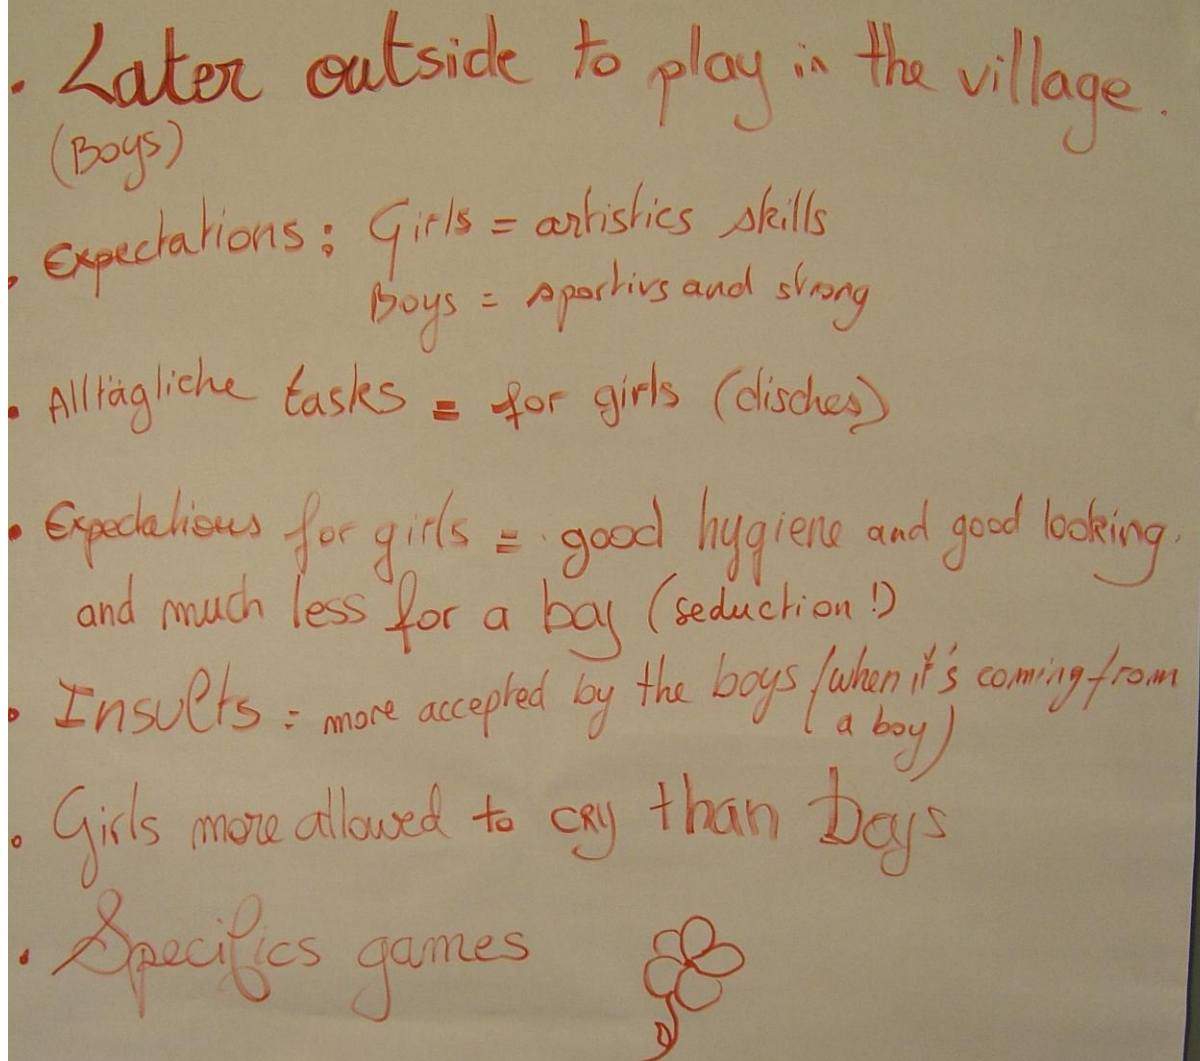 • Later outside to play in the village.
(Boys)
• Expectations: Girls = artistics skills
Boys = sportivs and strong
• Alltägliche tasks = for girls (disches)
• Expectations for girls = good hygiene and good looking.
and much less for a boy (seduction!)
• Insults = more accepted by the boys (when it's coming from
a boy)
• Girls more allowed to cry than boys
• Specifics games